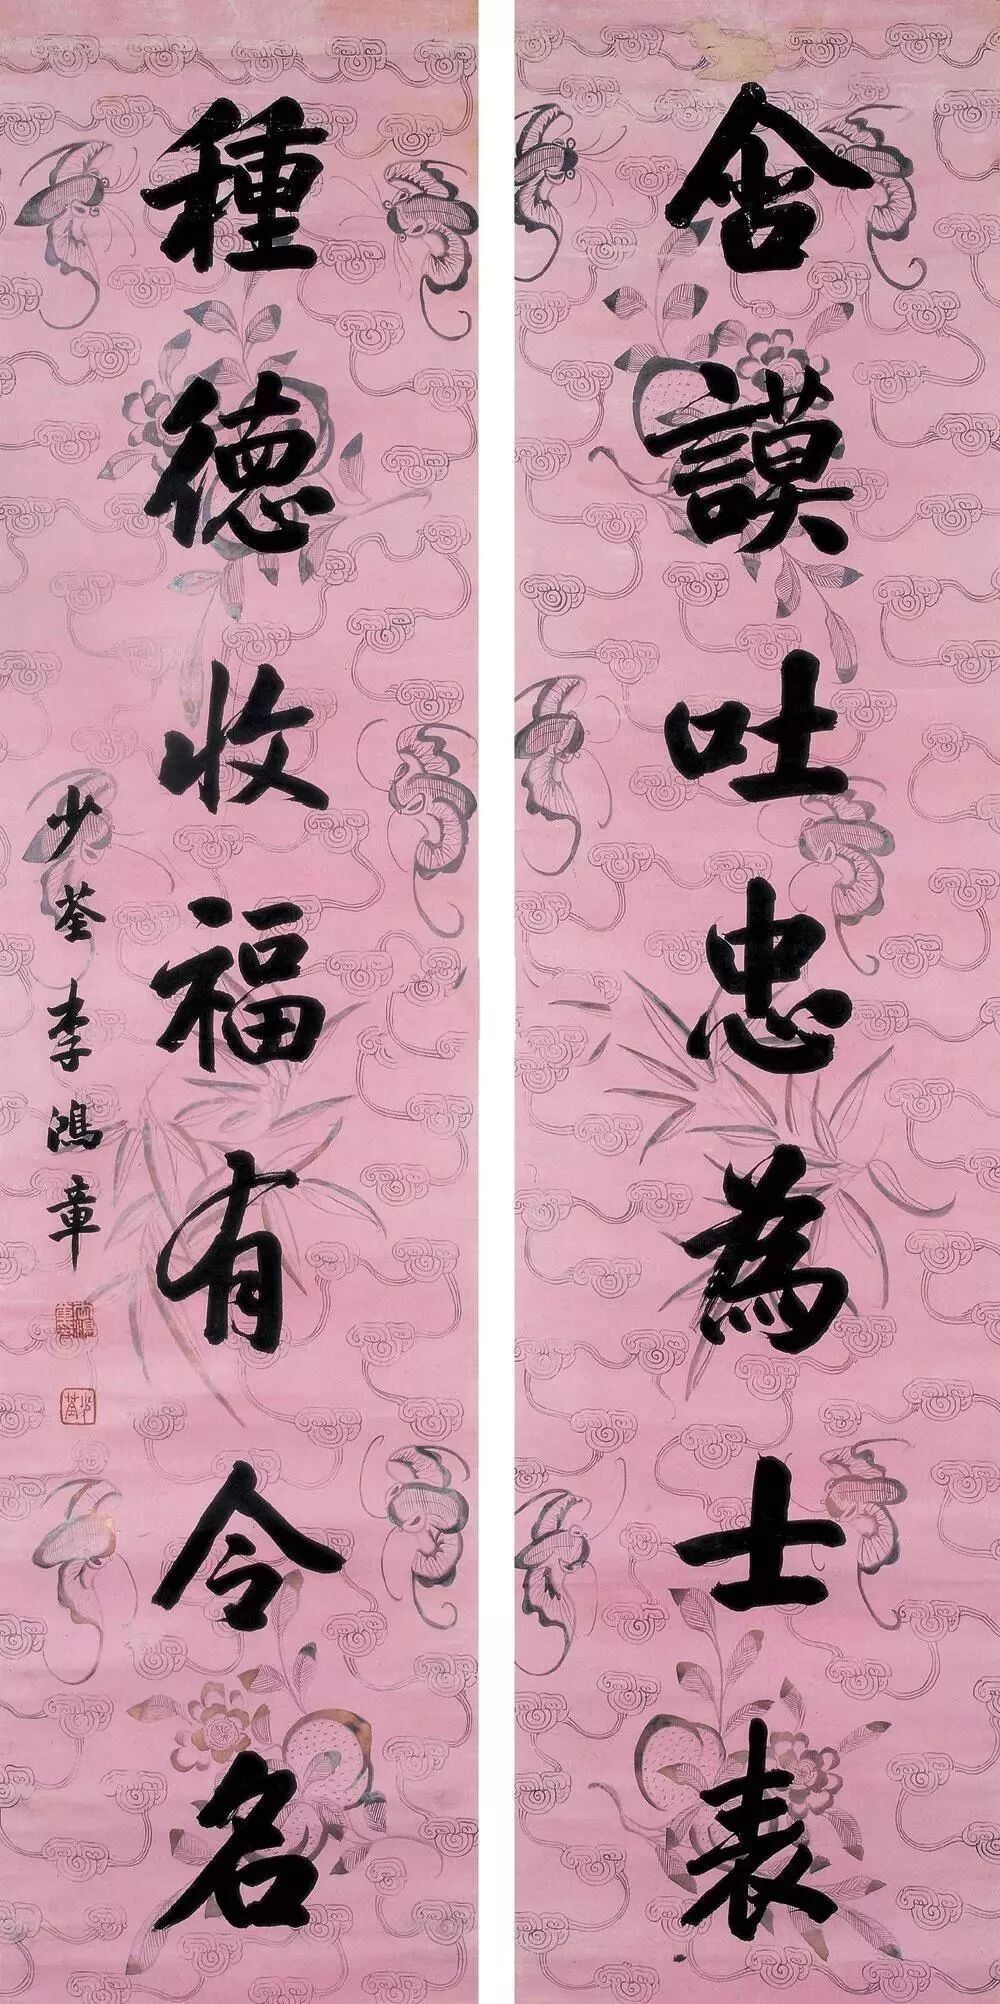 含謨吐忠為士表
種德收福有令名
少荃李鴻章
少荃